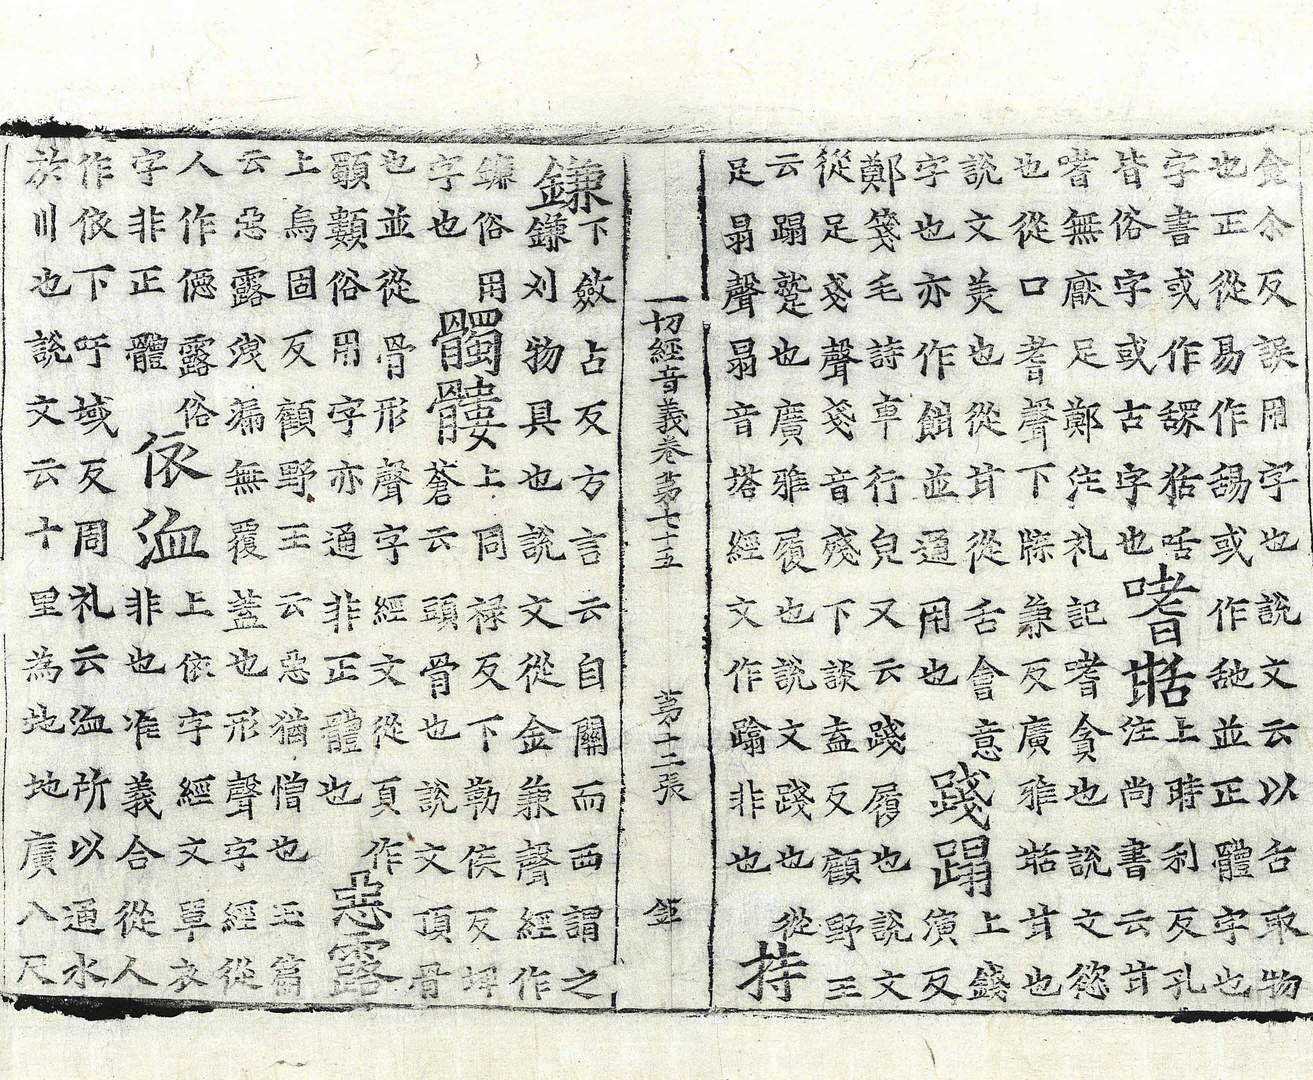 食尒反誤用字也說文云以舌取物
也正從易作舓或作舐並正體字也
字書或作狧咶
皆俗字或古字也
嗜甛
上時利反孔
注尚書云甘
嗜無厭足鄭注礼記嗜貪也說文慾
也從口耆聲下牒兼反廣雅甛甘也
說文美也從甘從舌會意
字也亦作䬯並通用也
踐蹋
上錢
演反
鄭箋毛詩車行皃又云踐履也說文
從足戔聲戔音殘下談盍反顧野王
云蹋蹵也廣雅履也說文踐也從
足𦐇聲𦐇音塔經文作蹹非也
持
一切經音義卷第七十五 第十二張 鉅
鎌
下斂占反方言云自關而西謂之
鎌刈物具也說文從金兼聲經作
鐮俗用
字也
髑髏
上同祿反下勒侯反埤
蒼云頭骨也說文頂骨
也並從骨形聲字經文從頁作
顝䫫俗用字亦通非正體也
惡露
上烏固反顧野王云惡猶憎也玉篇
云惡露洩漏無覆蓋也形聲字經從
人作僫露俗
字非正體
依洫
上依字經文單衣
非也准義合從人
作依下吁域反周礼云洫所以通水
於川也說文云十里為地地廣八尺